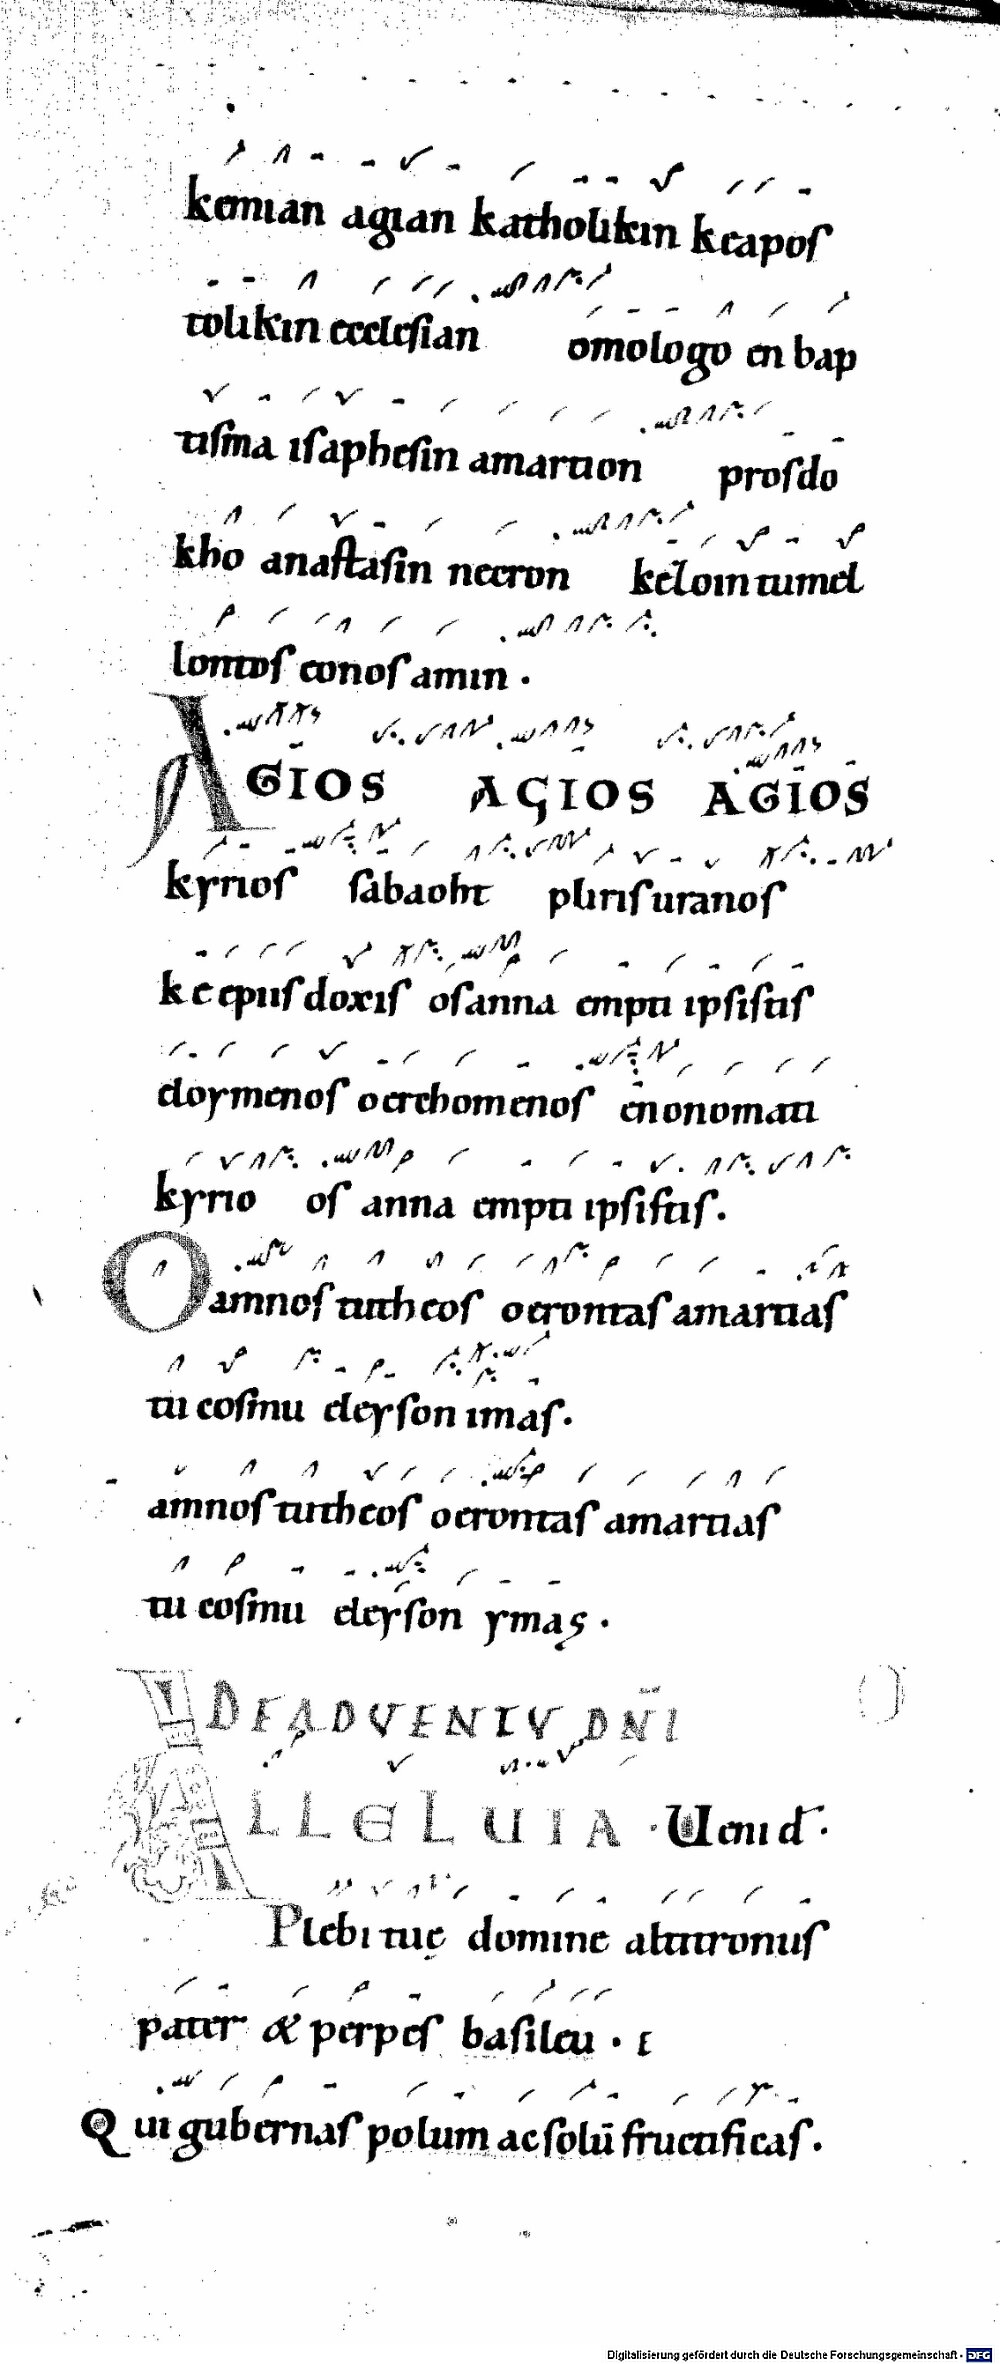 kemian agian katholikin keapos
tolikin ecclesian omologo en bap
tisma isaphesin amartion prosdo
kho anastasin necron keloin tumel
lontos eonos amin.
AGIOS AGIOS AGIOS
kyrios sabaoht pliris uranos
ke epiis doxis osanna empti ipsistis
eloymenos o erchomenos en onomati
kyrio os anna empti ipsistis.
O amnos tutheos o erontas amartias
tu cosmu eleyson imas.
amnos tutheos o erontas amartias
tu cosmu eleyson ymas.
DE ADVENTU DNI
ALLELUIA. Ueni d.
Plebi tuę domine altitronus
pater & perpes basileu.
Qui gubernas polum ac solū fructificas.
Digitalisierung gefördert durch die Deutsche Forschungsgemeinschaft - DFG